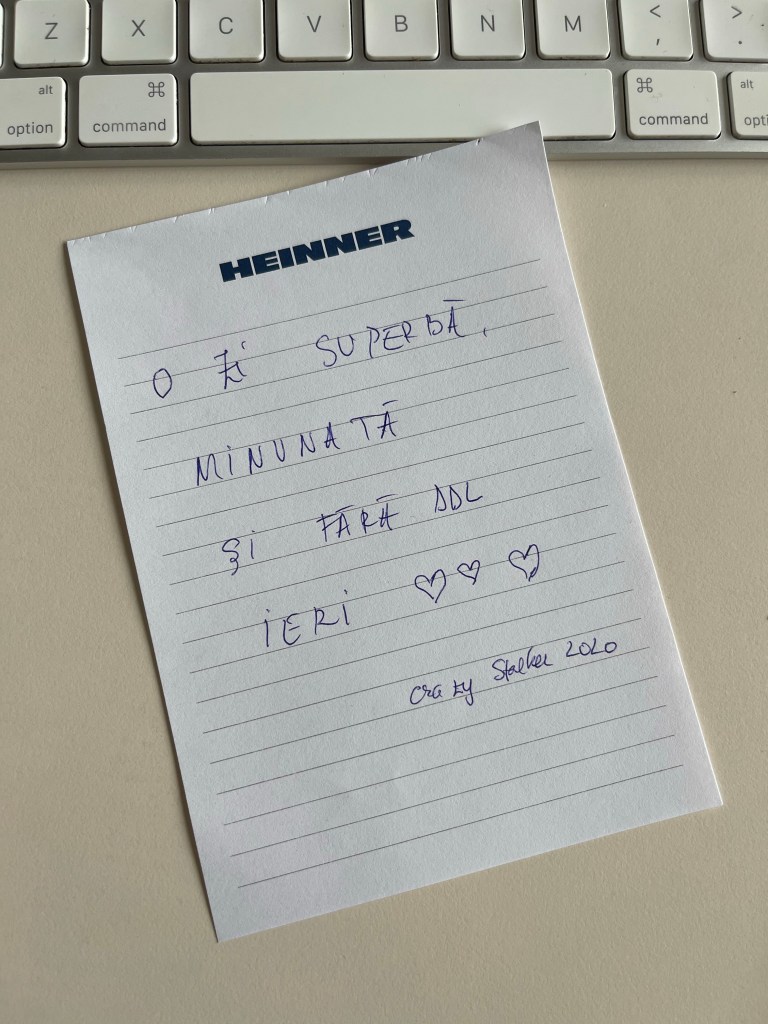 Z X C V B N M < , > .
alt option ⌘ command ⌘ command alt
HEINNER
O ZI SUPERBĂ,
MINUNATĂ
ȘI FĂRĂ DDL
IERI ♡♡ ♡
crazy Stalker 2020